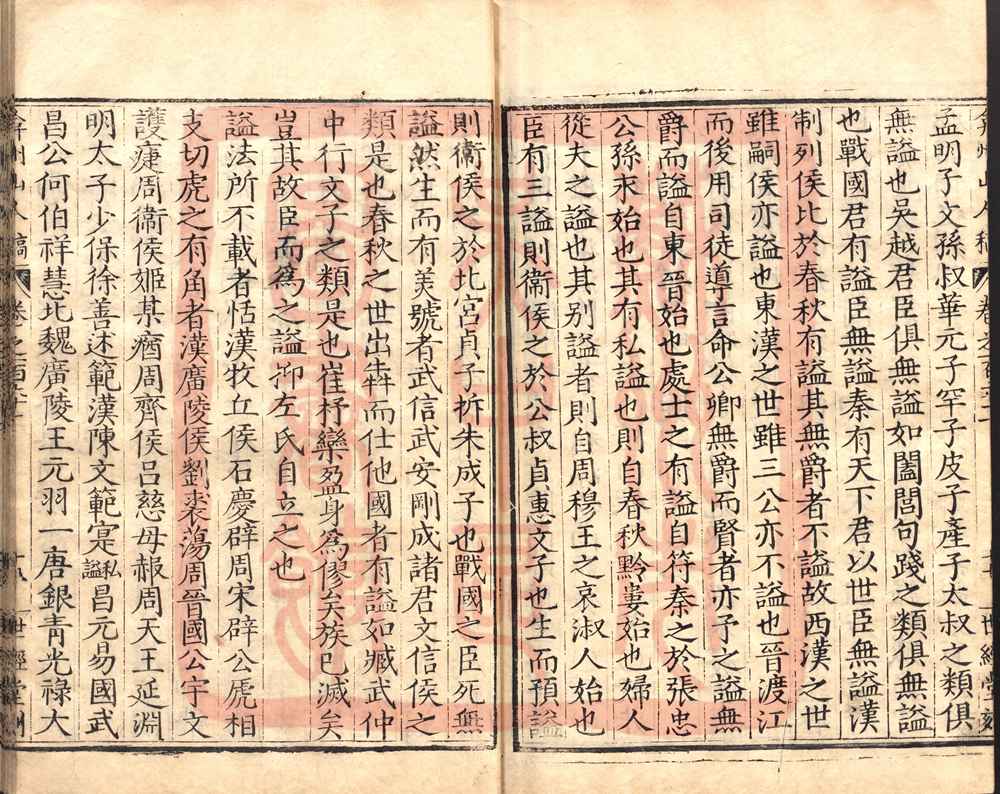 弇州山人稿 卷之百六十 世經堂刻
孟明子文孫叔華元子罕子皮子產子太叔之類俱
無謚也吳越君臣俱無謚如闔閭句踐之類俱無謚
也戰國君有謚臣無謚秦有天下君以世臣無謚漢
制列侯比於春秋有謚其無爵者不謚故西漢之世
雖嗣侯亦謚也東漢之世雖三公亦不謚也晉渡江
而後用司徒導言命公卿無爵而賢者亦予之謚無
爵而謚自東晉始也處士之有謚自符秦之於張忠
公孫永始也其有私謚也則自春秋黔婁始也婦人
從夫之謚也其別謚者則自周穆王之哀淑人始也
臣有三謚則衞侯之於公叔貞惠文子也生而預謚
則衞侯之於北宮貞子析朱成子也戰國之臣死無
謚然生而有美號者武信武安剛成諸君文信侯之
類是也春秋之世出犇而仕他國者有謚如臧武仲
中行文子之類是也崔杼欒盈身為僇矣族已滅矣
豈其故臣而為之謚抑左氏自立之也
謚法所不載者恬漢牧丘侯石慶辟周宋辟公虒相
支切虎之有角者漢廣陵侯劉裘蕩周晉國公宇文
護㾏周衞侯姬某㾭周齊侯呂慈母赧周天王延淵
明太子少保徐善述範漢陳文範寔私謚昌元易國武
昌公何伯祥慧北魏廣陵王元羽一唐銀青光祿大
弇州山人稿 卷之百六十 世經堂刻